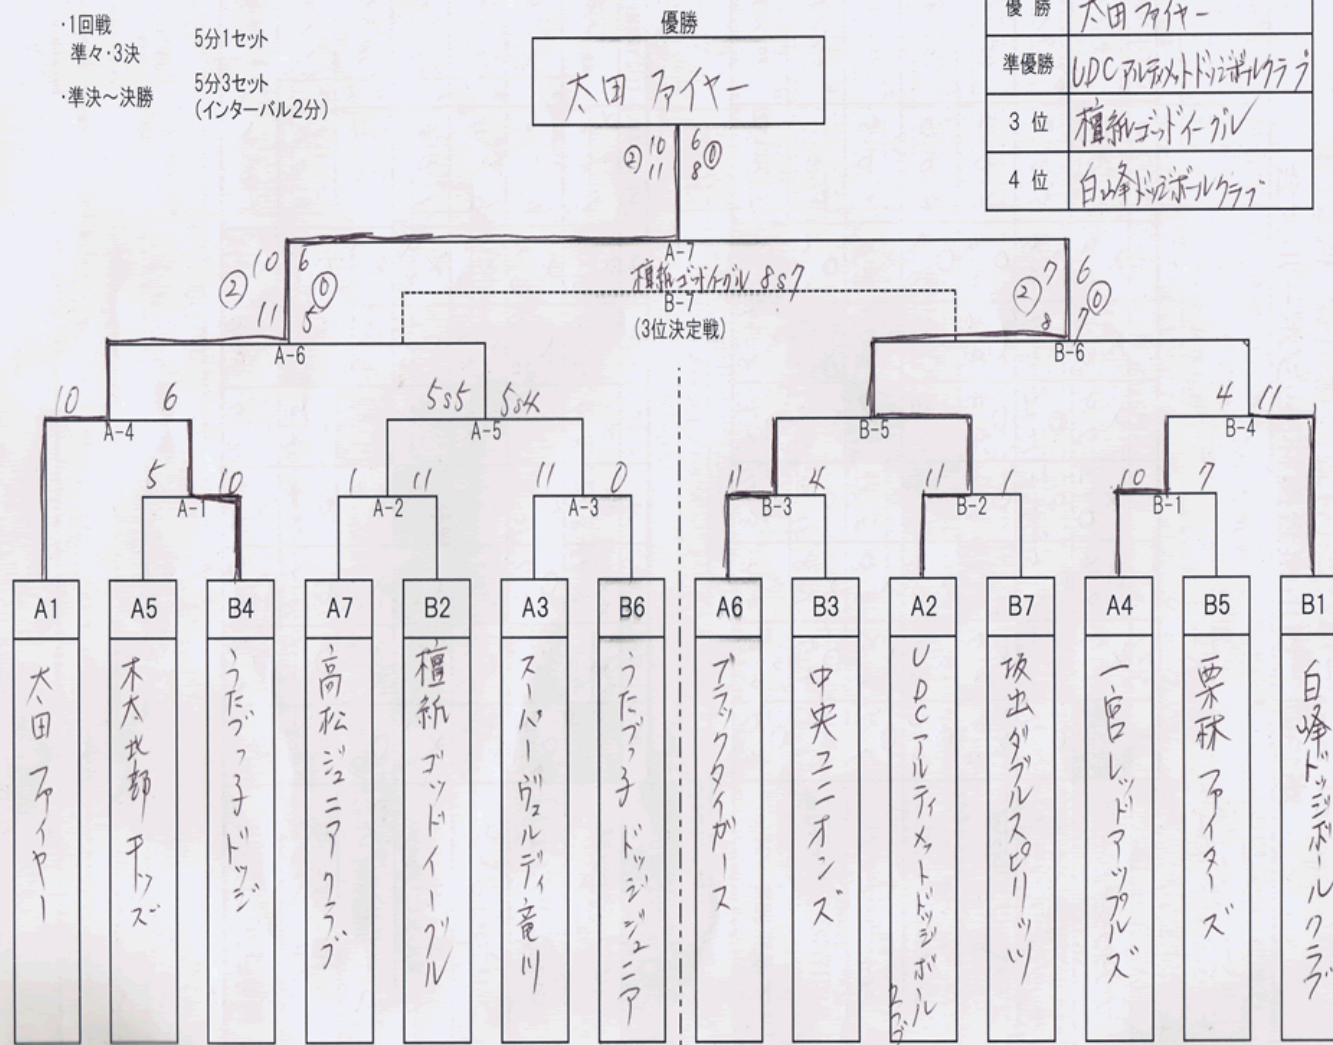 ・1回戦
準々・3決 5分1セット
・準決～決勝 5分3セット
(インターバル2分)
優勝
太田 ファイヤー
優勝 太田 ファイヤー
準優勝 UDCアルティメットドッジボールクラブ
3 位 檀紙ゴッドイーグル
4 位 白峰ドッジボールクラブ
② 10 6 ⓪
11 8
A-7
檀紙ゴッドイーグル 8s7
B-7
(3位決定戦)
② 10 6 ⓪
11 5
A-6
② 7 6 ⓪
8 7
B-6
10 6
A-4
5s5 5s4
A-5
B-5
4 11
B-4
5 10
A-1
1 11
A-2
11 0
A-3
11 4
B-3
11 1
B-2
10 7
B-1
A1 A5 B4 A7 B2 A3 B6 A6 B3 A2 B7 A4 B5 B1
太田 ファイヤー
木太北部 キッズ
うたづっ子 ドッジ
高松ジュニアクラブ
檀紙 ゴッドイーグル
スーパーヴェルディ竜川
うたづっ子 ドッジジュニア
ブラックタイガース
中央ユニオンズ
UDCアルティメットドッジボールクラブ
坂出ダブルスピリッツ
一宮レッドアップルズ
栗林 ファイターズ
白峰ドッジボールクラブ